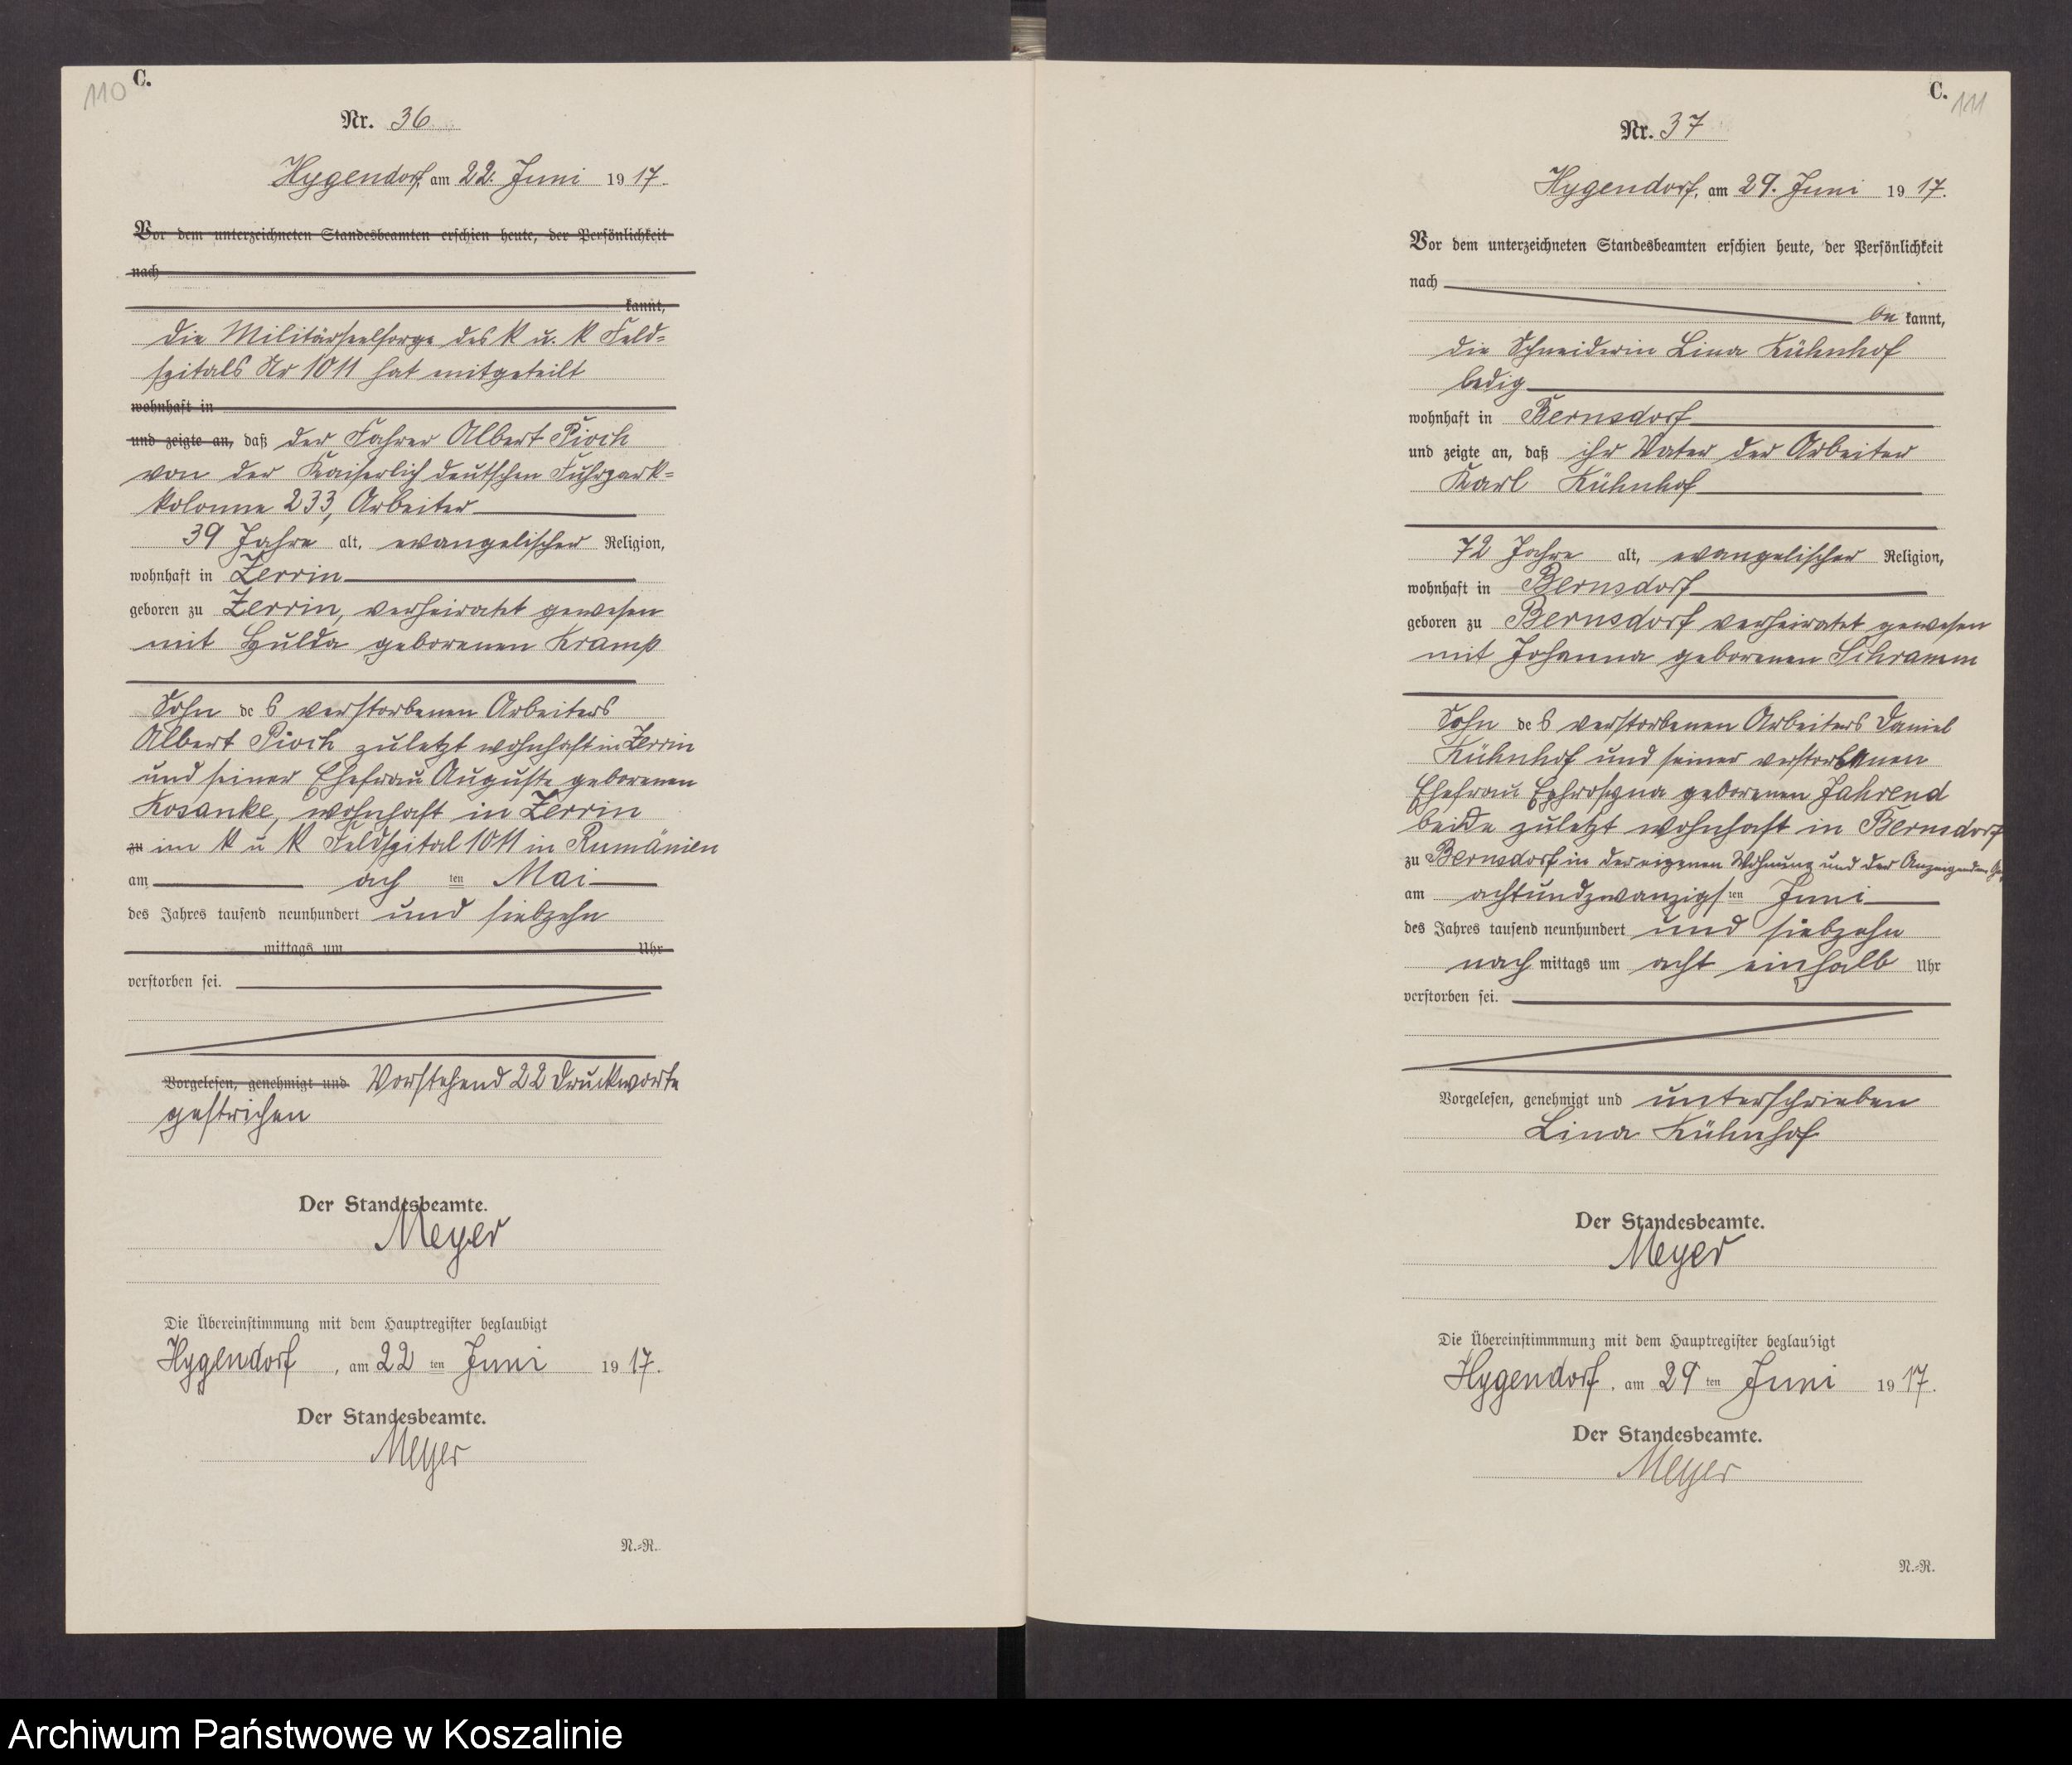 110 C.
Nr. 36
Hygendorf, am 22. Juni 1917.
Vor dem unterzeichneten Standesbeamten erschien heute, der Persönlichkeit
nach
kannt,
die Militärseelsorge des k u. k Feld=
spitals Nr 1011 hat mitgeteilt
wohnhaft in
und zeigte an, daß der Fahrer Albert Pioch
von der Kaiserlich deutschen Fuhrpark=
kolonne 233, Arbeiter
39 Jahre alt, evangelischer Religion,
wohnhaft in Zerrin
geboren zu Zerrin, verheiratet gewesen
mit Hulda geborenen Kramp
Sohn des verstorbenen Arbeiters
Albert Pioch zuletzt wohnhaft in Zerrin
und seiner Ehefrau Auguste geborenen
Kosanke, wohnhaft in Zerrin
zu im k u k Feldspital 1011 in Rumänien
am ach ten Mai
des Jahres tausend neunhundert und siebzehn
mittags um Uhr
verstorben sei.
Vorgelesen, genehmigt und Vorstehend 22 Druckworte
gestrichen
Der Standesbeamte.
Meyer
Die Übereinstimmung mit dem Hauptregister beglaubigt
Hygendorf, am 22 ten Juni 1917.
Der Standesbeamte.
Meyer
N.=R.
C. 111
Nr. 37
Hygendorf, am 29. Juni 1917.
Vor dem unterzeichneten Standesbeamten erschien heute, der Persönlichkeit
nach
be kannt,
die Schneiderin Lina Kühnhof
ledig
wohnhaft in Bernsdorf
und zeigte an, daß ihr Vater der Arbeiter
Karl Kühnhof
72 Jahre alt, evangelischer Religion,
wohnhaft in Bernsdorf
geboren zu Bernsdorf verheiratet gewesen
mit Johanna geborenen Schramm
Sohn des verstorbenen Arbeiters Daniel
Kühnhof und seiner verstorbenen
Ehefrau geborenen Jahrend
beide zuletzt wohnhaft in Bernsdorf
zu Bernsdorf in der eigenen Wohnung und der Anzeigenden
am achtundzwanzigsten Juni
des Jahres tausend neunhundert und siebzehn
nach mittags um acht einhalb Uhr
verstorben sei.
Vorgelesen, genehmigt und unterschrieben
Lina Kühnhof
Der Standesbeamte.
Meyer
Die Übereinstimmmung mit dem Hauptregister beglaubigt
Hygendorf, am 29 ten Juni 1917.
Der Standesbeamte.
Meyer
N.=R.
Archiwum Państwowe w Koszalinie